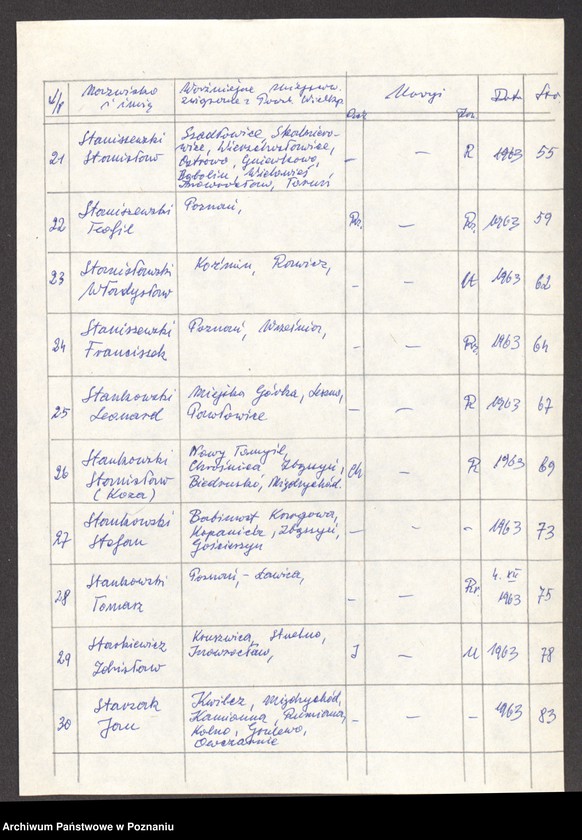 L/p Nazwisko i imię Ważniejsze miejscow. związane z Powst. Wielkp. Uwagi Data Str.
21 Staniszewski Stanisław
Szadłowice, Skalmierowice, Wierzchosławice,
Ostrowo, Gniewkowo,
Bąbolin, Wielowieś
Inowrocław, Toruń
– – R 1963 55
22 Staniszewski Teofil
Poznań,
– 1963 59
23 Stanisławski Władysław
Koźmin, Rawicz,
– – 1963 62
24 Staniszewski Franciszek
Poznań, Września,
– – 1963 64
25 Stankowski Leonard
Miejska Górka, Leszno,
Pawłowice
– – R 1963 67
26 Stankowski Stanisław (Koza)
Nowy Tomyśl,
Chrośnica, Zbąszyń,
Biedrusko, Międzychód.
Ch – R 1963 69
27 Stankowski Stefan
Babimost, Kargowa,
Kopanica, Zbąszyń,
Gościeszyn
– – – 1963 73
28 Stankowski Tomasz
Poznań, – Ławica,
– – 4. XII 1963 75
29 Starkiewicz Zdzisław
Kruszwica, Strzelno,
Inowrocław,
J – M 1963 78
30 Starzak Jan
Kwilcz, Międzychód,
Kamionna,
Kolno,
– – – 1963 83
Archiwum Państwowe w Poznaniu